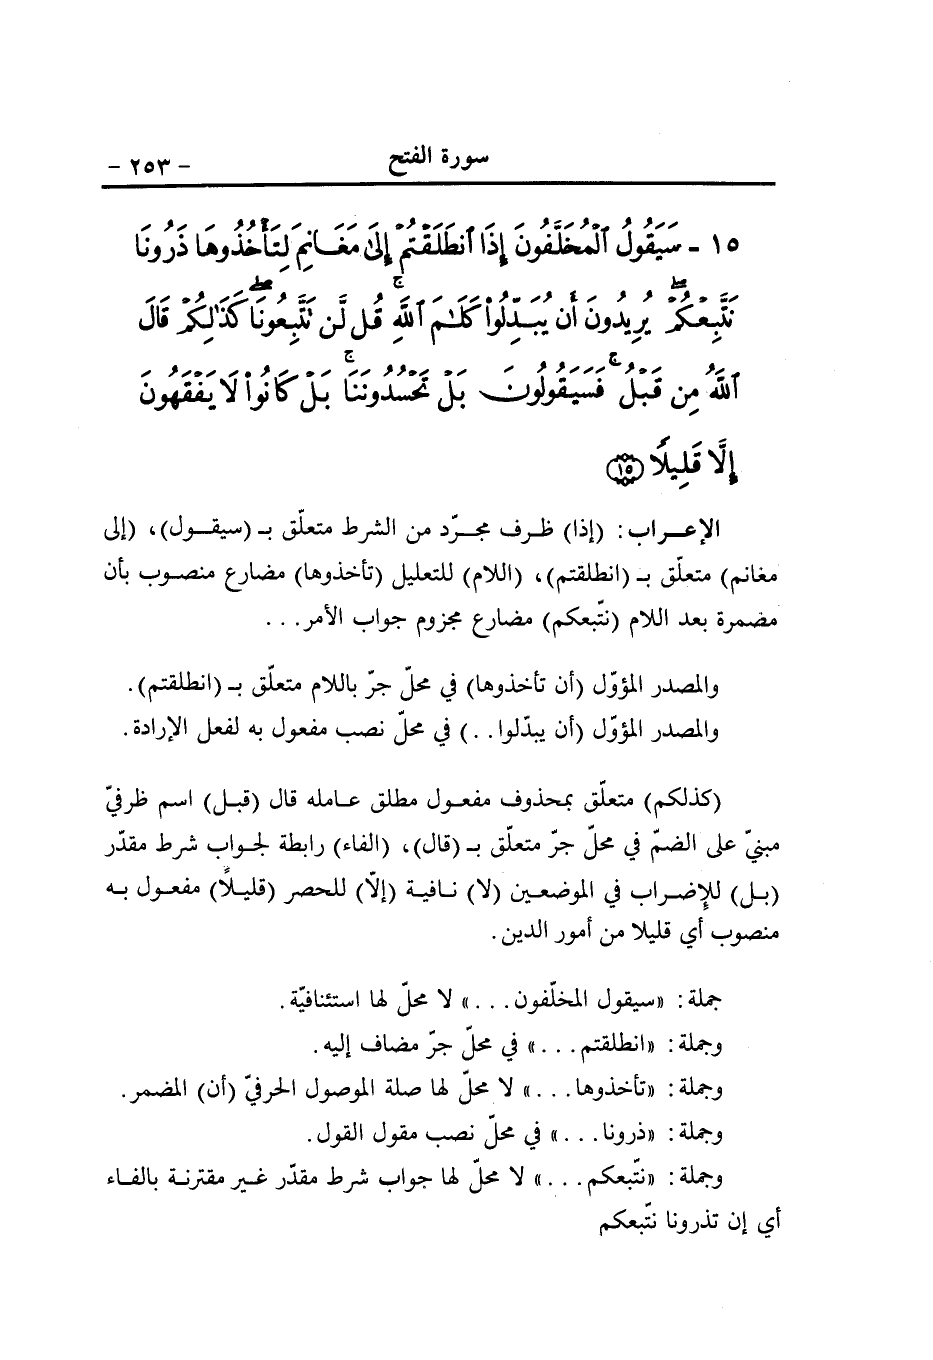 سورة الفتح - ٢٥٣ -
١٥ - سَيَقُولُ ٱلْمُخَلَّفُونَ إِذَا ٱنطَلَقْتُمْ إِلَىٰ مَغَانِمَ لِتَأْخُذُوهَا ذَرُونَا
نَتَّبِعْكُمْ ۖ يُرِيدُونَ أَن يُبَدِّلُوا۟ كَلَـٰمَ ٱللَّهِ ۚ قُل لَّن تَتَّبِعُونَا كَذَٰلِكُمْ قَالَ
ٱللَّهُ مِن قَبْلُ ۖ فَسَيَقُولُونَ بَلْ تَحْسُدُونَنَا ۚ بَلْ كَانُوا۟ لَا يَفْقَهُونَ
إِلَّا قَلِيلًا ﴿١٥﴾
الإعـراب: (إذا) ظـرف مجـرّد من الشرط متعلّق بـ (سيقـول)، (إلى
مغانم) متعلّق بـ (انطلقتم)، (اللام) للتعليل (تأخذوها) مضارع منصوب بأن
مضمرة بعد اللام (نتّبعكم) مضارع مجزوم جواب الأمر...
والمصدر المؤوّل (أن تأخذوها) في محلّ جرّ باللام متعلّق بـ (انطلقتم).
والمصدر المؤوّل (أن يبدّلوا..) في محلّ نصب مفعول به لفعل الإرادة.
(كذلكم) متعلّق بمحذوف مفعول مطلق عامله قال (قبل) اسم ظرفيّ
مبنيّ على الضمّ في محلّ جرّ متعلّق بـ (قال)، (الفاء) رابطة لجواب شرط مقدّر
(بـل) للإضـراب في الموضعـين (لا) نـافيـة (إلّا) للحصر (قليـلاً) مفعـول بـه
منصوب أي قليلا من أمور الدين.
جملة: «سيقول المخلّفون...» لا محلّ لها استئنافيّة.
وجملة: «انطلقتم...» في محلّ جرّ مضاف إليه.
وجملة: «تأخذوها...» لا محلّ لها صلة الموصول الحرفيّ (أن) المضمر.
وجملة: «ذرونا...» في محلّ نصب مقول القول.
وجملة: «نتّبعكم...» لا محلّ لها جواب شرط مقدّر غـير مقترنـة بالفـاء
أي إن تذرونا نتّبعكم